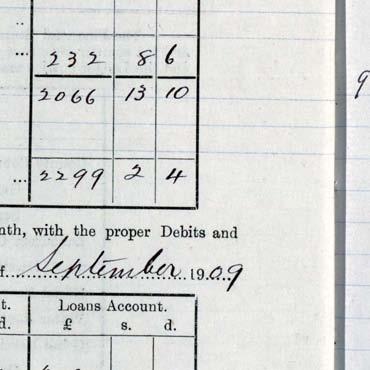 ... 232 8 6
2066 13 10
... 2299 2 4
nth, with the proper Debits and
f September 1909
t. Loans Account.
d. £ s. d.
9